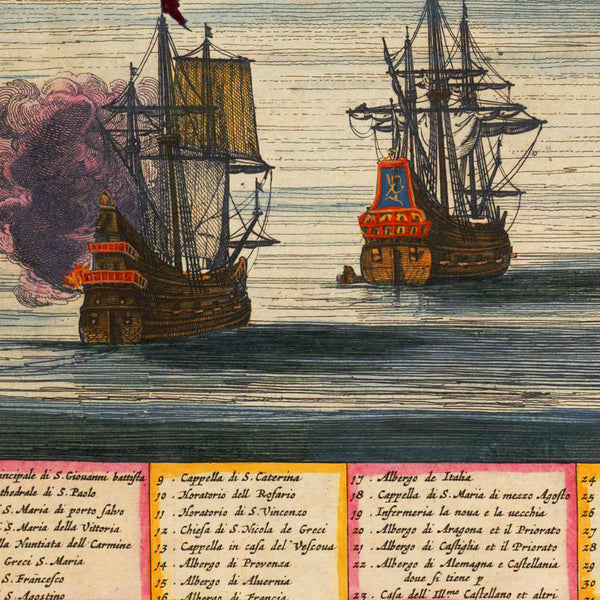 ncipale di S. Giovanni battista
thedrale di S. Paolo
S. Maria di porto salvo
S. Maria della Vittoria
la Nuntiata dell Carmine
Greci S. Maria
S. Francesco
S. Agostino
9 . Cappella di S. Caterina
10 . Horatorio dell Rosario
11 . Horatorio di S. Vincenzo
12 . Chiesa di S. Nicola de Greci
13 . Cappella in casa del Vescoua
14 . Albergo di Provenza
15 . Albergo di Aluernia
16 . Albergo di Francia
17 . Albergo de Italia
18 . Cappella di S. Maria di mezzo Agosto
19 . Infermeria la noua e la vecchia
20 . Albergo di Aragona et il Priorato
21 . Albergo di Castiglia et il Priorato
22 . Albergo di Alemagna e Castellania
doue si tiene p
23 . Casa dell' Ill.mo Castellano et altri
24
25
26
27
28
29
30